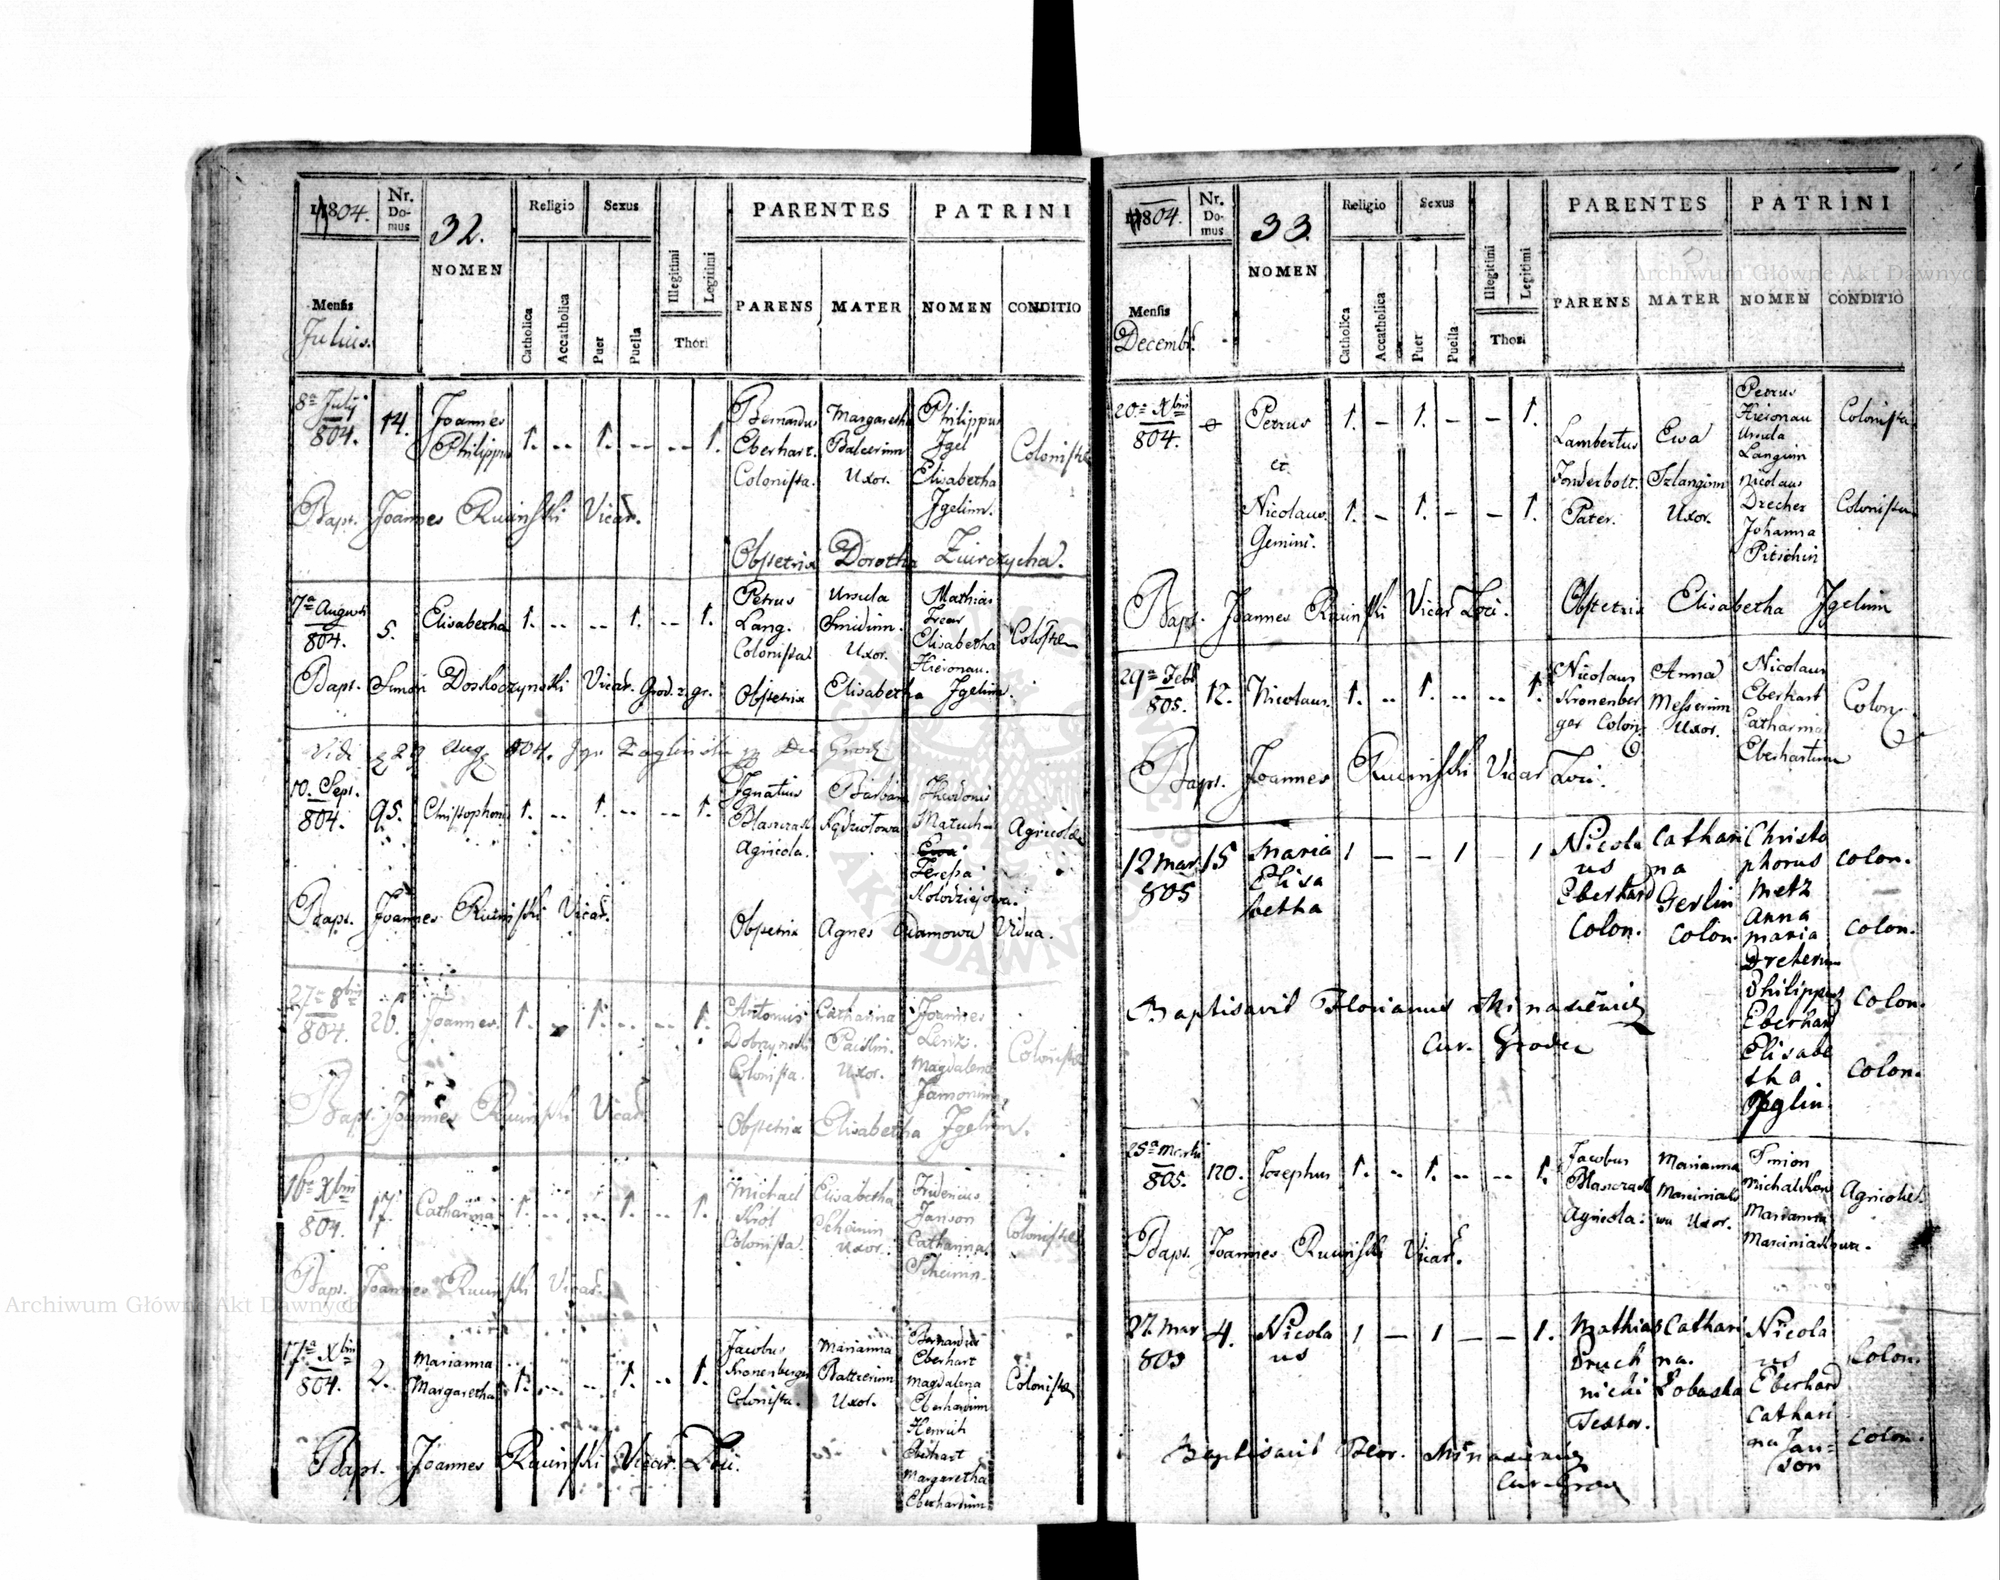 Archiwum Główne Akt Dawnych
1804. Nr. Domus 32. NOMEN Religio Sexus PARENTES PATRINI
Mensis Julius. Catholica Accatholica Puer Puella Illegitimi Legitimi Thori PARENS MATER NOMEN CONDITIO
8a July 804. 14. Joannes Philippus 1. -- 1. -- -- 1. Bernardus Eberhart. Colonista. Margaretha Balcerinn Uxor. Philippus Jgel Elisabetha Jgelinn. Colonistae
Bapt. Joannes Ruciński Vicar.
Obstetrix Dorothea
7a Augusti 804. 5. Elisabetha 1. -- -- 1. -- 1. Petrus Lang. Colonista Ursula Smidinn. Uxor. Mathias Elisabetha Hieronau.
Bapt. Simon Doskoczynski Vicar. Grod. r. gr. Obstetrix Elisabetha Jgelinn.
Vidi 29 Aug 804.
10. Sept. 804. 95. Christophorus 1. -- 1. -- -- 1. Ignatius Blasczak Agricola. Barbara Teressa Kolodziejowa. Agricolae
Bapt. Joannes Ruciński Vicar.
Obstetrix Agnes Adamowa Vidua.
27a 8bris 804. 26. Joannes. 1. 1. -- -- 1. Antonius Dobrzynski Colonista. Catharina Uxor. Joannes Lenz. Magdalena Colonistae
Bapt. Joannes Ruciński Vicar.
Obstetrix Elisabetha Jgelinn.
16a Xbris 804. 17. Catharina 1. -- -- 1. -- 1. Michael Król Colonista. Elisabetha Uxor. Fridericus Janson Catharina Scheinin. Colonistae
Bapt. Joannes Ruciński Vicar.
17a Xbris 804. 2. Marianna Margaretha 1. -- -- 1. -- 1. Jacobus Kronenberger Colonista. Marianna Baltzerinn Uxor. Bernardus Eberhart Magdalena Eberhardinn Henrich Eberhart Margaretha Eberhardinn Colonistae
Bapt. Joannes Ruciński Vicar. Loci.
1804. Nr. Domus 33. NOMEN Religio Sexus PARENTES PATRINI
Mensis Decembr. Catholica Accatholica Puer Puella Illegitimi Legitimi Thori PARENS MATER NOMEN CONDITIO
20a Xbris 804. Petrus 1. - 1. - - 1. et Nicolaus. 1. - 1. - - 1. Gemini. Lambertus Fonderbolt. Pater. Ewa Szlanginn Uxor. Petrus Hieronau Ursula Langinn Colonista. Nicolaus Drecher Johanna Pitschin Colonista
Bapt. Joannes Ruciński Vicar Loci. Obstetrix Elisabetha Jgelinn
29a Febr 805. 12. Nicolaus. 1. -- 1. -- -- 1. Nicolaus Kronenberger Colon. Anna Messerinn Uxor. Nicolaus Eberhart Catharina Eberhartinn Colon.
Bapt. Joannes Ruciński Vicar Loci.
12 Mar 805 15 Maria Elisabetha 1 - - 1 - 1 Nicolaus Eberhard Colon. Catharina Gerlin Colon. Christophorus Metz colon. Anna Maria Dreherin colon. Philippus Eberhard colon. Elisabetha Jglin. colon.
Baptisavit Florianus Minasiewicz
Cur. Grodec
25a Martii 805. 120. Josephus 1. -- 1. -- -- 1. Jacobus Blasczak Agricola. Marianna Marciniakowa Uxor. Simon Michalskow Marianna Marciniakowa. Agricolae.
Bapt. Joannes Ruciński Vicar.
27. Mar 805 4. Nicolaus 1 - 1 - - 1. Mathias Pruchnicki Testor. Catharina. Lobaska Nicolaus Eberhard colon. Catharina Janson colon.
Baptisavit Flor. Minasiewicz
Cur. Grod
Archiwum Główne Akt Dawnych